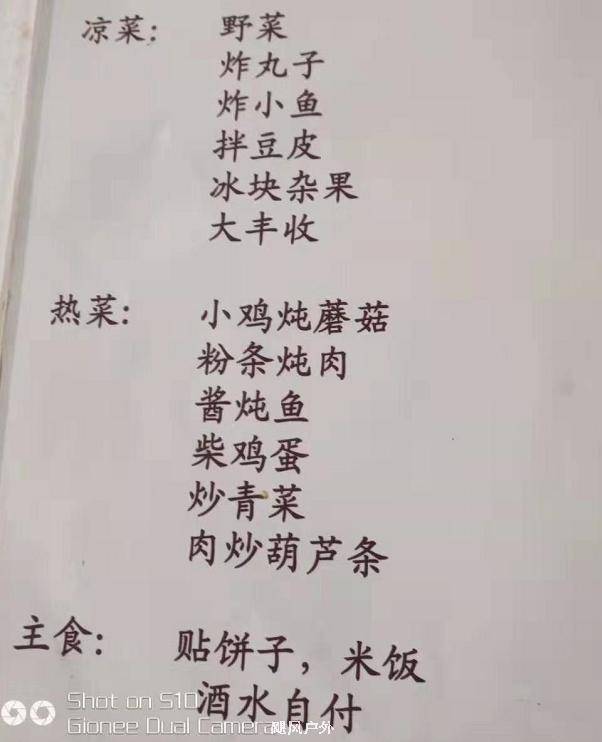 凉菜： 野菜
炸丸子
炸小鱼
拌豆皮
冰块杂果
大丰收
热菜： 小鸡炖蘑菇
粉条炖肉
酱炖鱼
柴鸡蛋
炒青菜
肉炒葫芦条
主食： 贴饼子，米饭
酒水自付
Shot on S10
Gionee Dual Camera
飓风户外